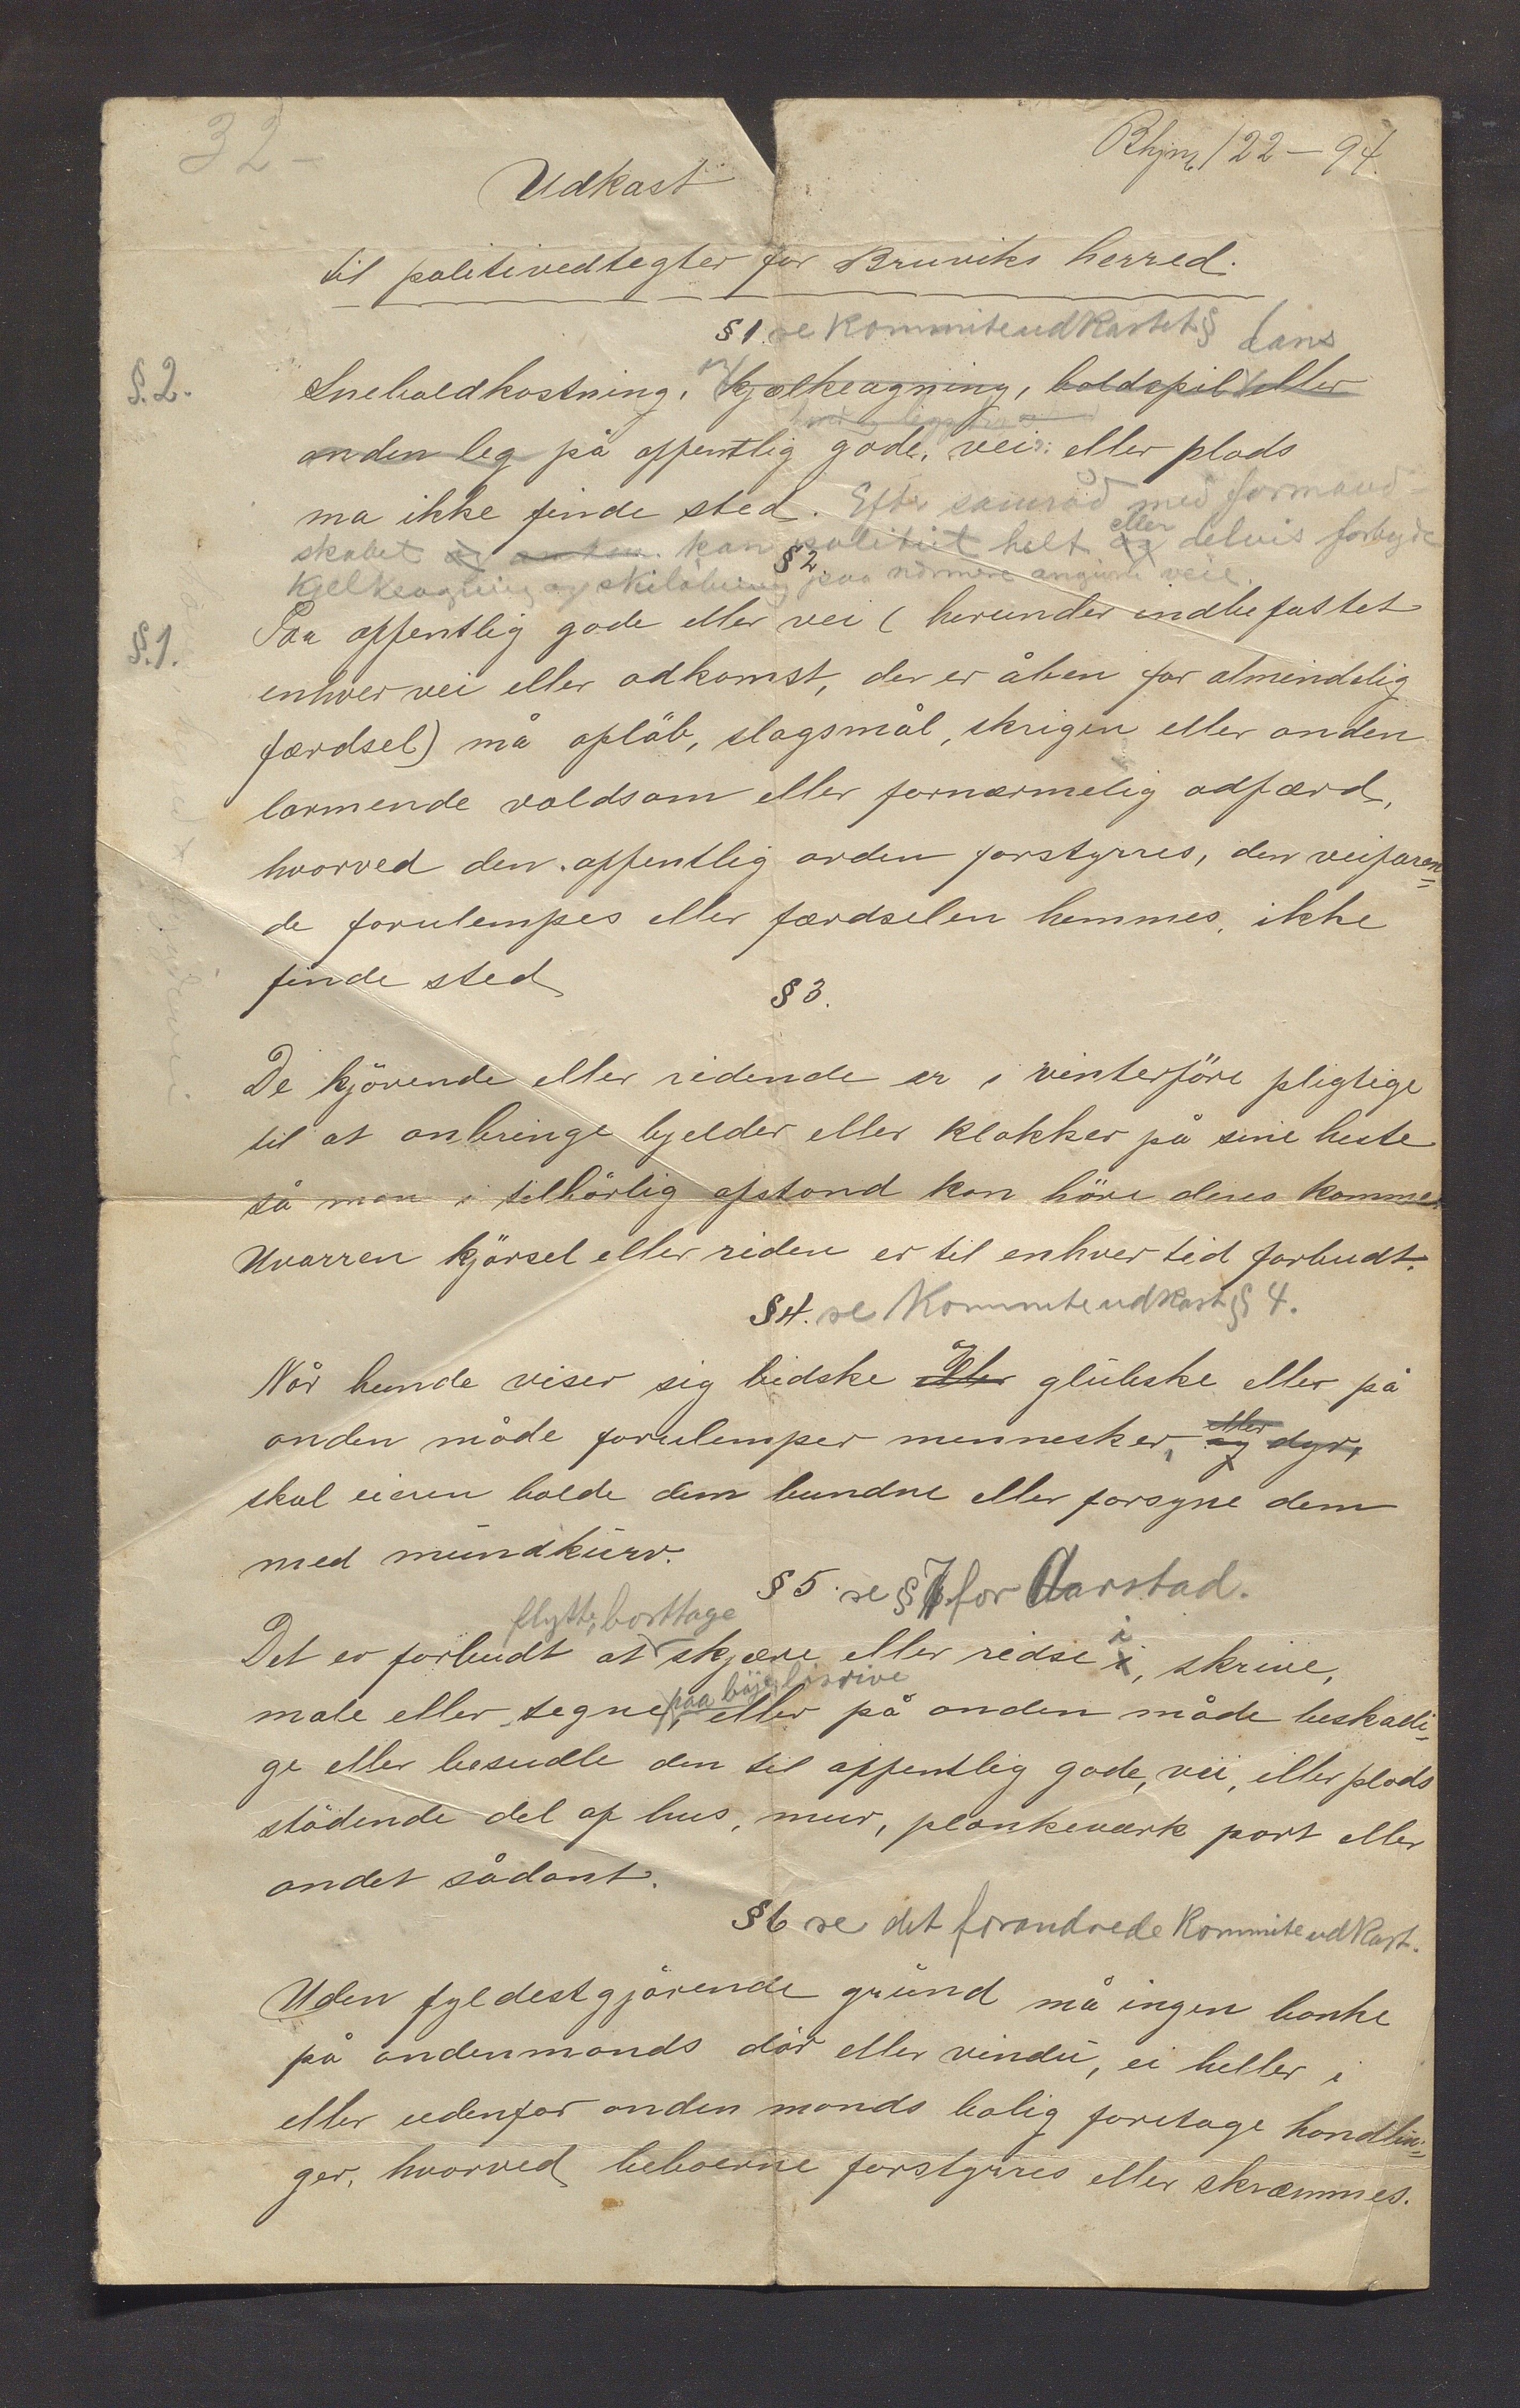 32 –
/22 – 94.
Udkast
til politivedtægter for Bruviks herred.
§ 1. se Kommiteudkastet §
dans
§. 2.
Sneboldkastning, kjælkeagning, boldspil eller
anden leg på offentlig gade, vei eller plads
ma ikke finde sted. Efter samråd med formand-
skabet og kan politiet helt og eller delvis forbyde
§ 2
kjelkeagning og skiløbning paa nærmere angivne veie.
§. 1.
Paa offentlig gade eller vei (herunder indbefattet
enhver vei eller adkomst, der er åben for almindelig
færdsel) må opløb, slagsmål, skrigen eller anden
larmende voldsom eller fornærmelig adfærd,
hvorved den offentlig orden forstyrres, den veifaren=
de forulempes eller færdselen hemmes, ikke
finde sted
§ 3.
De kjörende eller ridende er i vinterföre pligtige
til at anbringe bjelder eller klokker på sine heste
så man i tilbörlig afstand kan höre deres komme.
Uvarren kjörsel eller riden er til enhver tid forbudt.
§ 4. se Kommiteudkast § 4.
Når hunde viser sig bidske eller glubske eller på
anden måde forulemper mennesker, og eller dyr,
skal eieren holde dem bundne eller forsyne dem
med mundkurv.
§ 5. se § 7 for Aarstad.
flytte, borttage
Det er forbudt at skjære eller ridse i, skrive,
paa böie, bisrive
male eller tegne, eller på anden måde beskadi=
ge eller besudle den til offentlig gade, vei, eller plads
stödende del af hus, mur, plankeværk port eller
andet sådant.
§ 6 se det forandrede Kommiteudkast.
Uden fyldestgjörende grund må ingen banke
på andenmands dör eller vindu, ei heller i
eller udenfor anden mands bolig foretage handlin=
ger, hvorved beboerne forstyrres eller skræmmes.